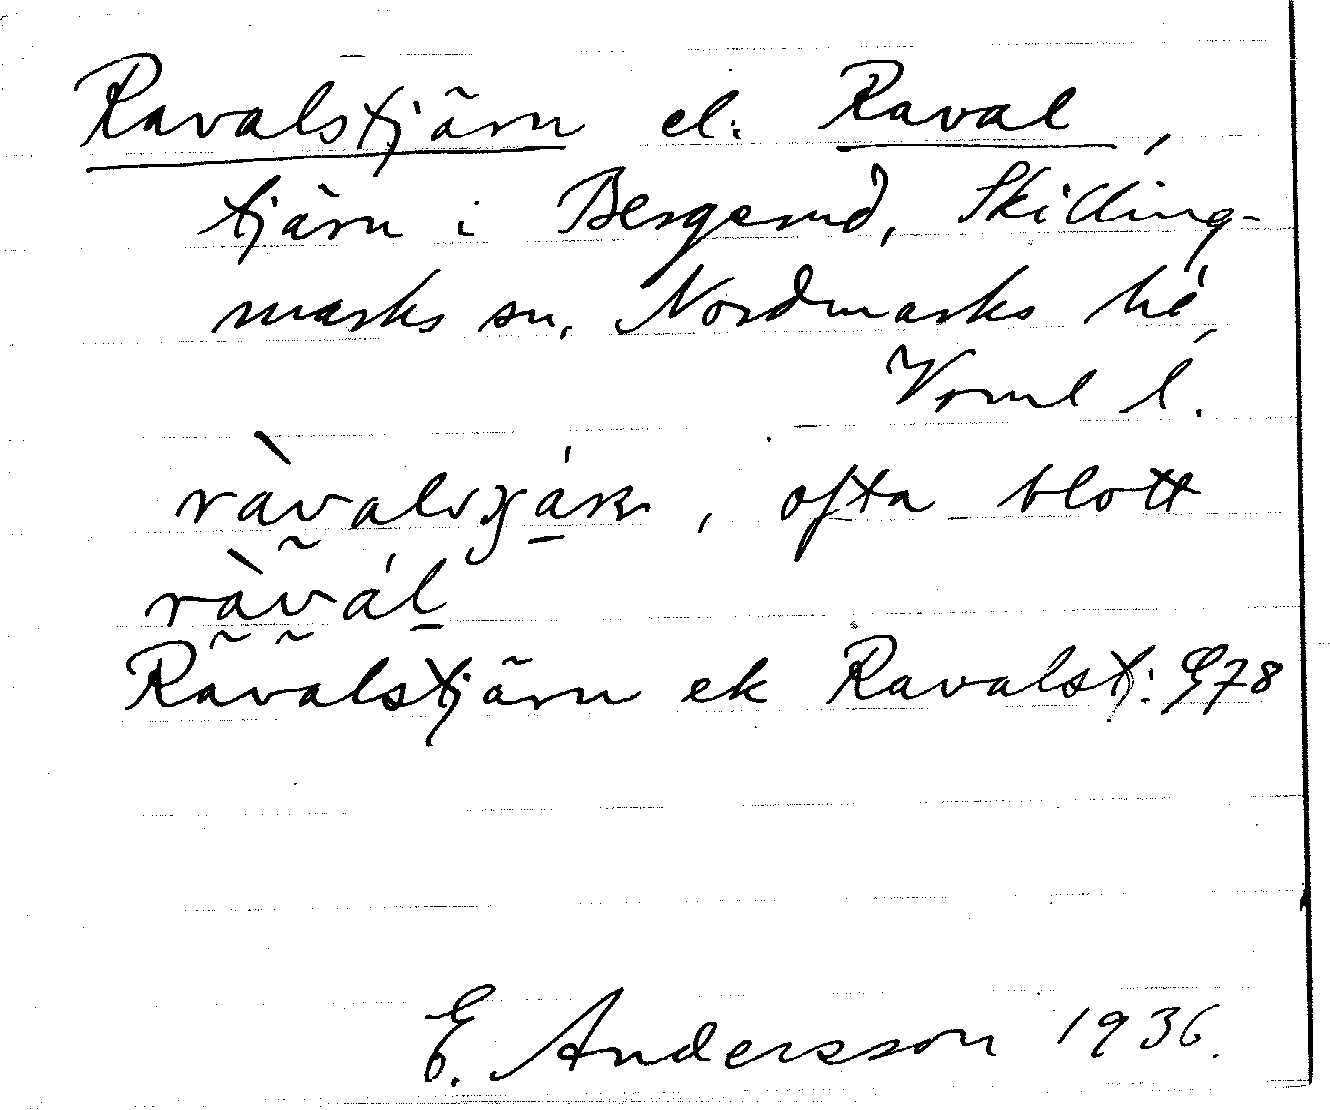 Ravalstjärn el. Raval,
tjärn i Bergerud, Skilling-
marks sn, Nordmarks hd,
Vrml l.
, ofta blott
ràvál
Ravalstjärn ek Ravalstj: E78
E. Andersson 1936.